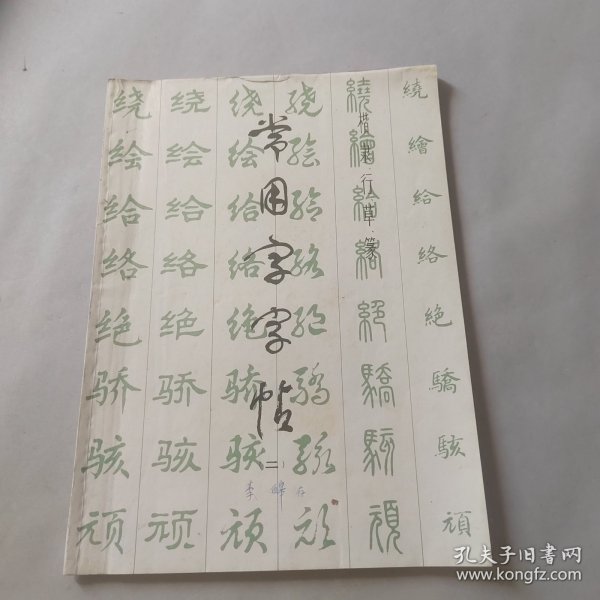 常用字字帖
楷·隶·行·草·篆
(二)
绕 绕 绕 绕 繞 繞
绘 绘 绘 绘 繪 繪
给 给 给 给 給 給
络 络 络 络 絡 絡
绝 绝 绝 绝 絕 絶
骄 骄 骄 驕 驕 驕
骇 骇 骇 骇 駭 駭
顽 顽 顽 顽 頑 頑
孔夫子旧书网
www.kongfz.com